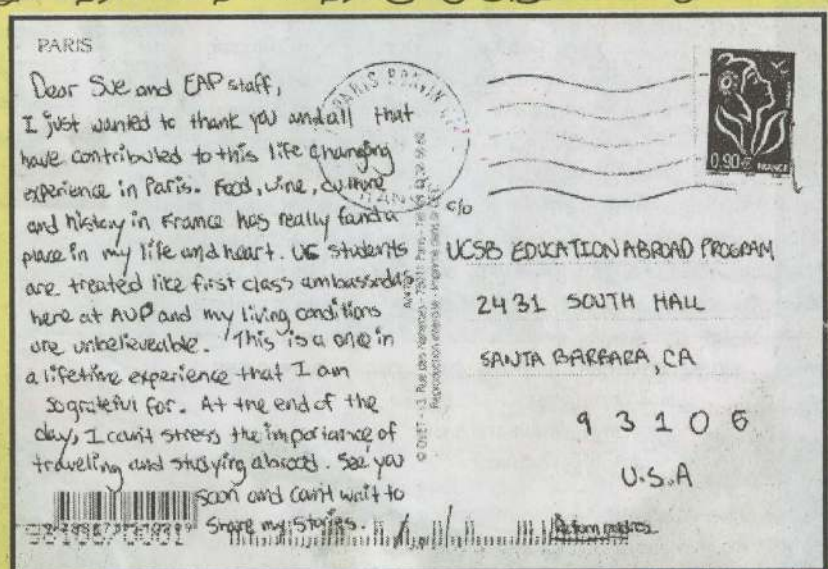 PARIS
Dear Sue and EAP staff,
I just wanted to thank you and all that
have contributed to this life changing
experience in Paris. Food, wine, culture
and history in France has really found a
place in my life and heart. UC students
are treated like first class ambassadors
here at AUP and my living conditions
are unbelieveable. This is a one in
a lifetime experience that I am
so grateful for. At the end of the
day, I can't stress the importance of
traveling and studying abroad. See you
soon and can't wait to
share my stories.
PARIS
0.90€ FRANCE
c/o
UCSB EDUCATION ABROAD PROGRAM
2431 SOUTH HALL
SANTA BARBARA, CA
93106
U.S.A